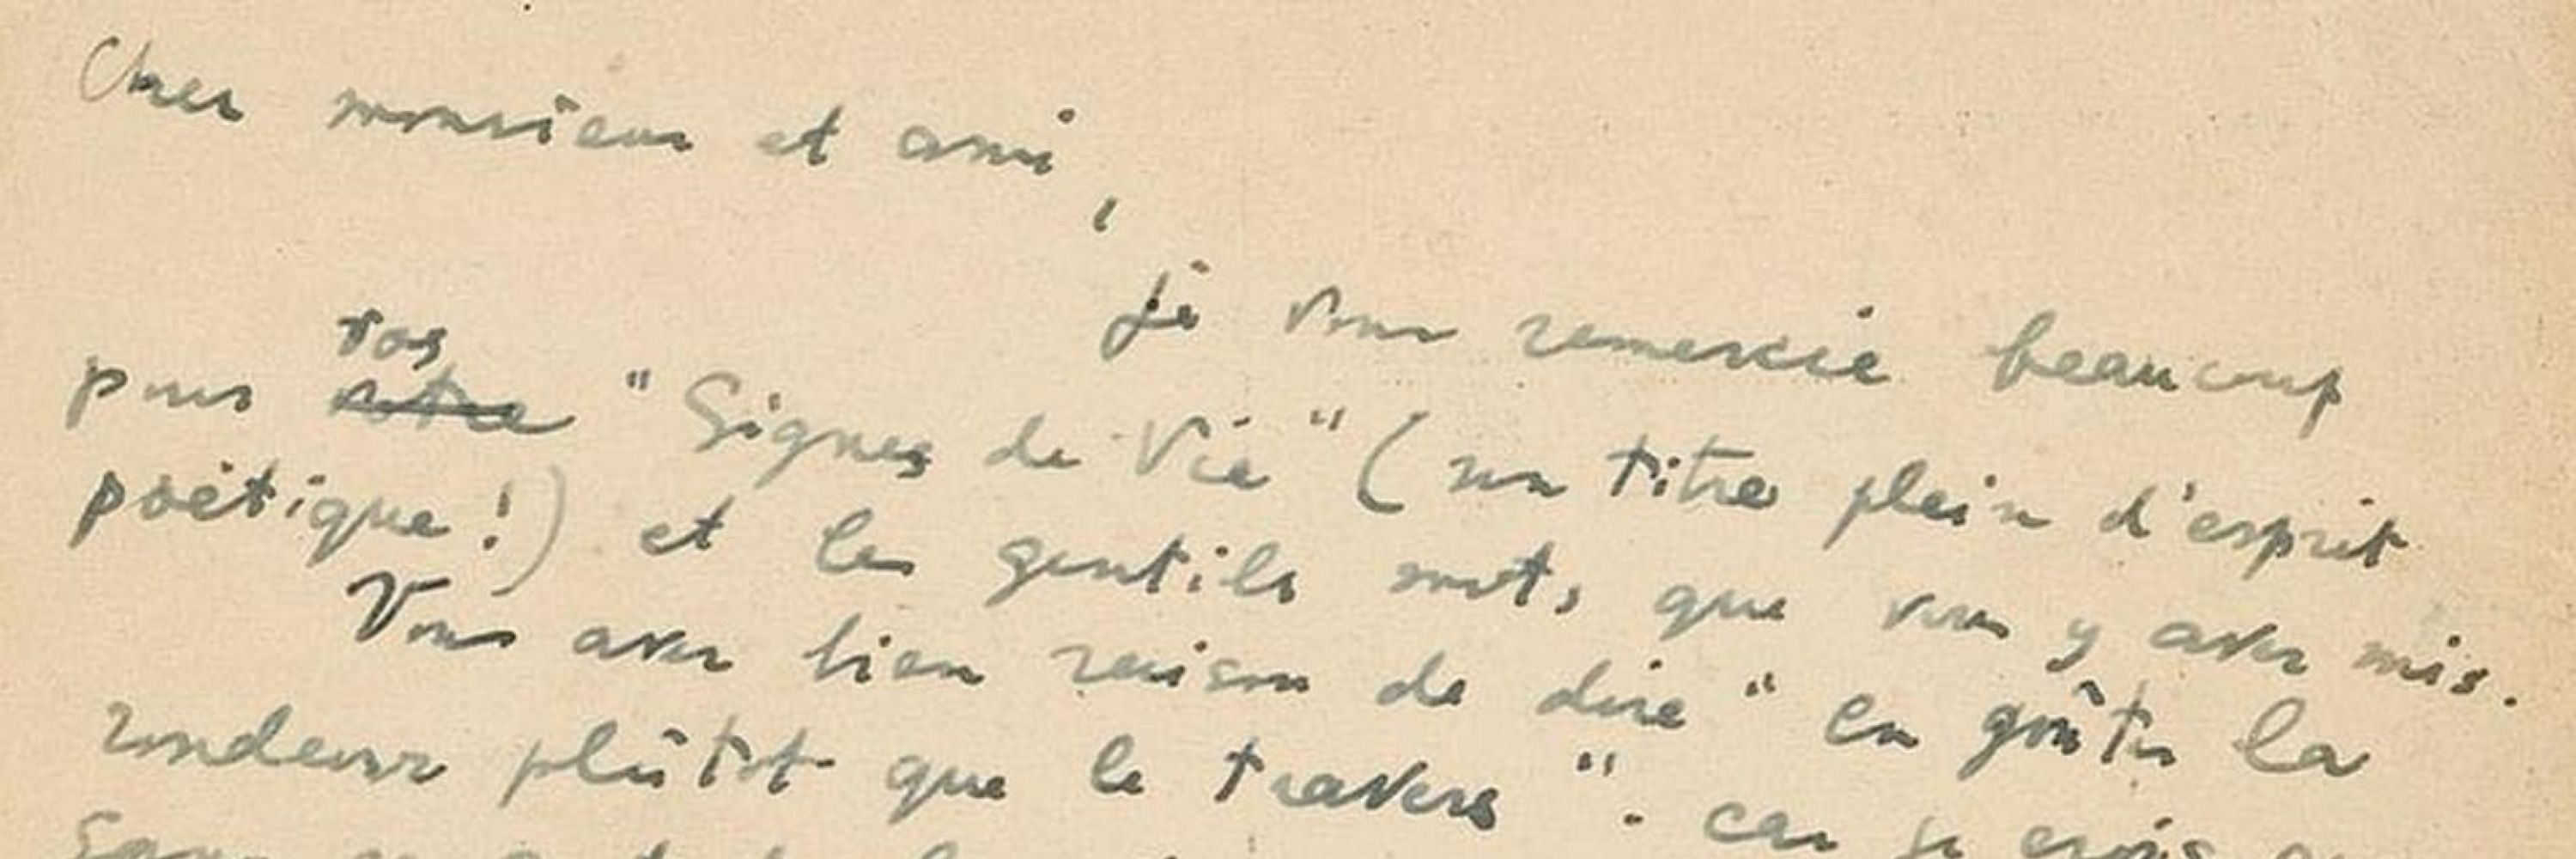 Cher monsieur et ami,
je vous remercie beaucoup
vos
pour votre "Signes de Vie" (un titre plein d'esprit
poëtique!) et les gentils mots, que vous y avez mis.
Vous avez bien raison de dire "en goûter la
rondeur plûtot que le travers". car je crois